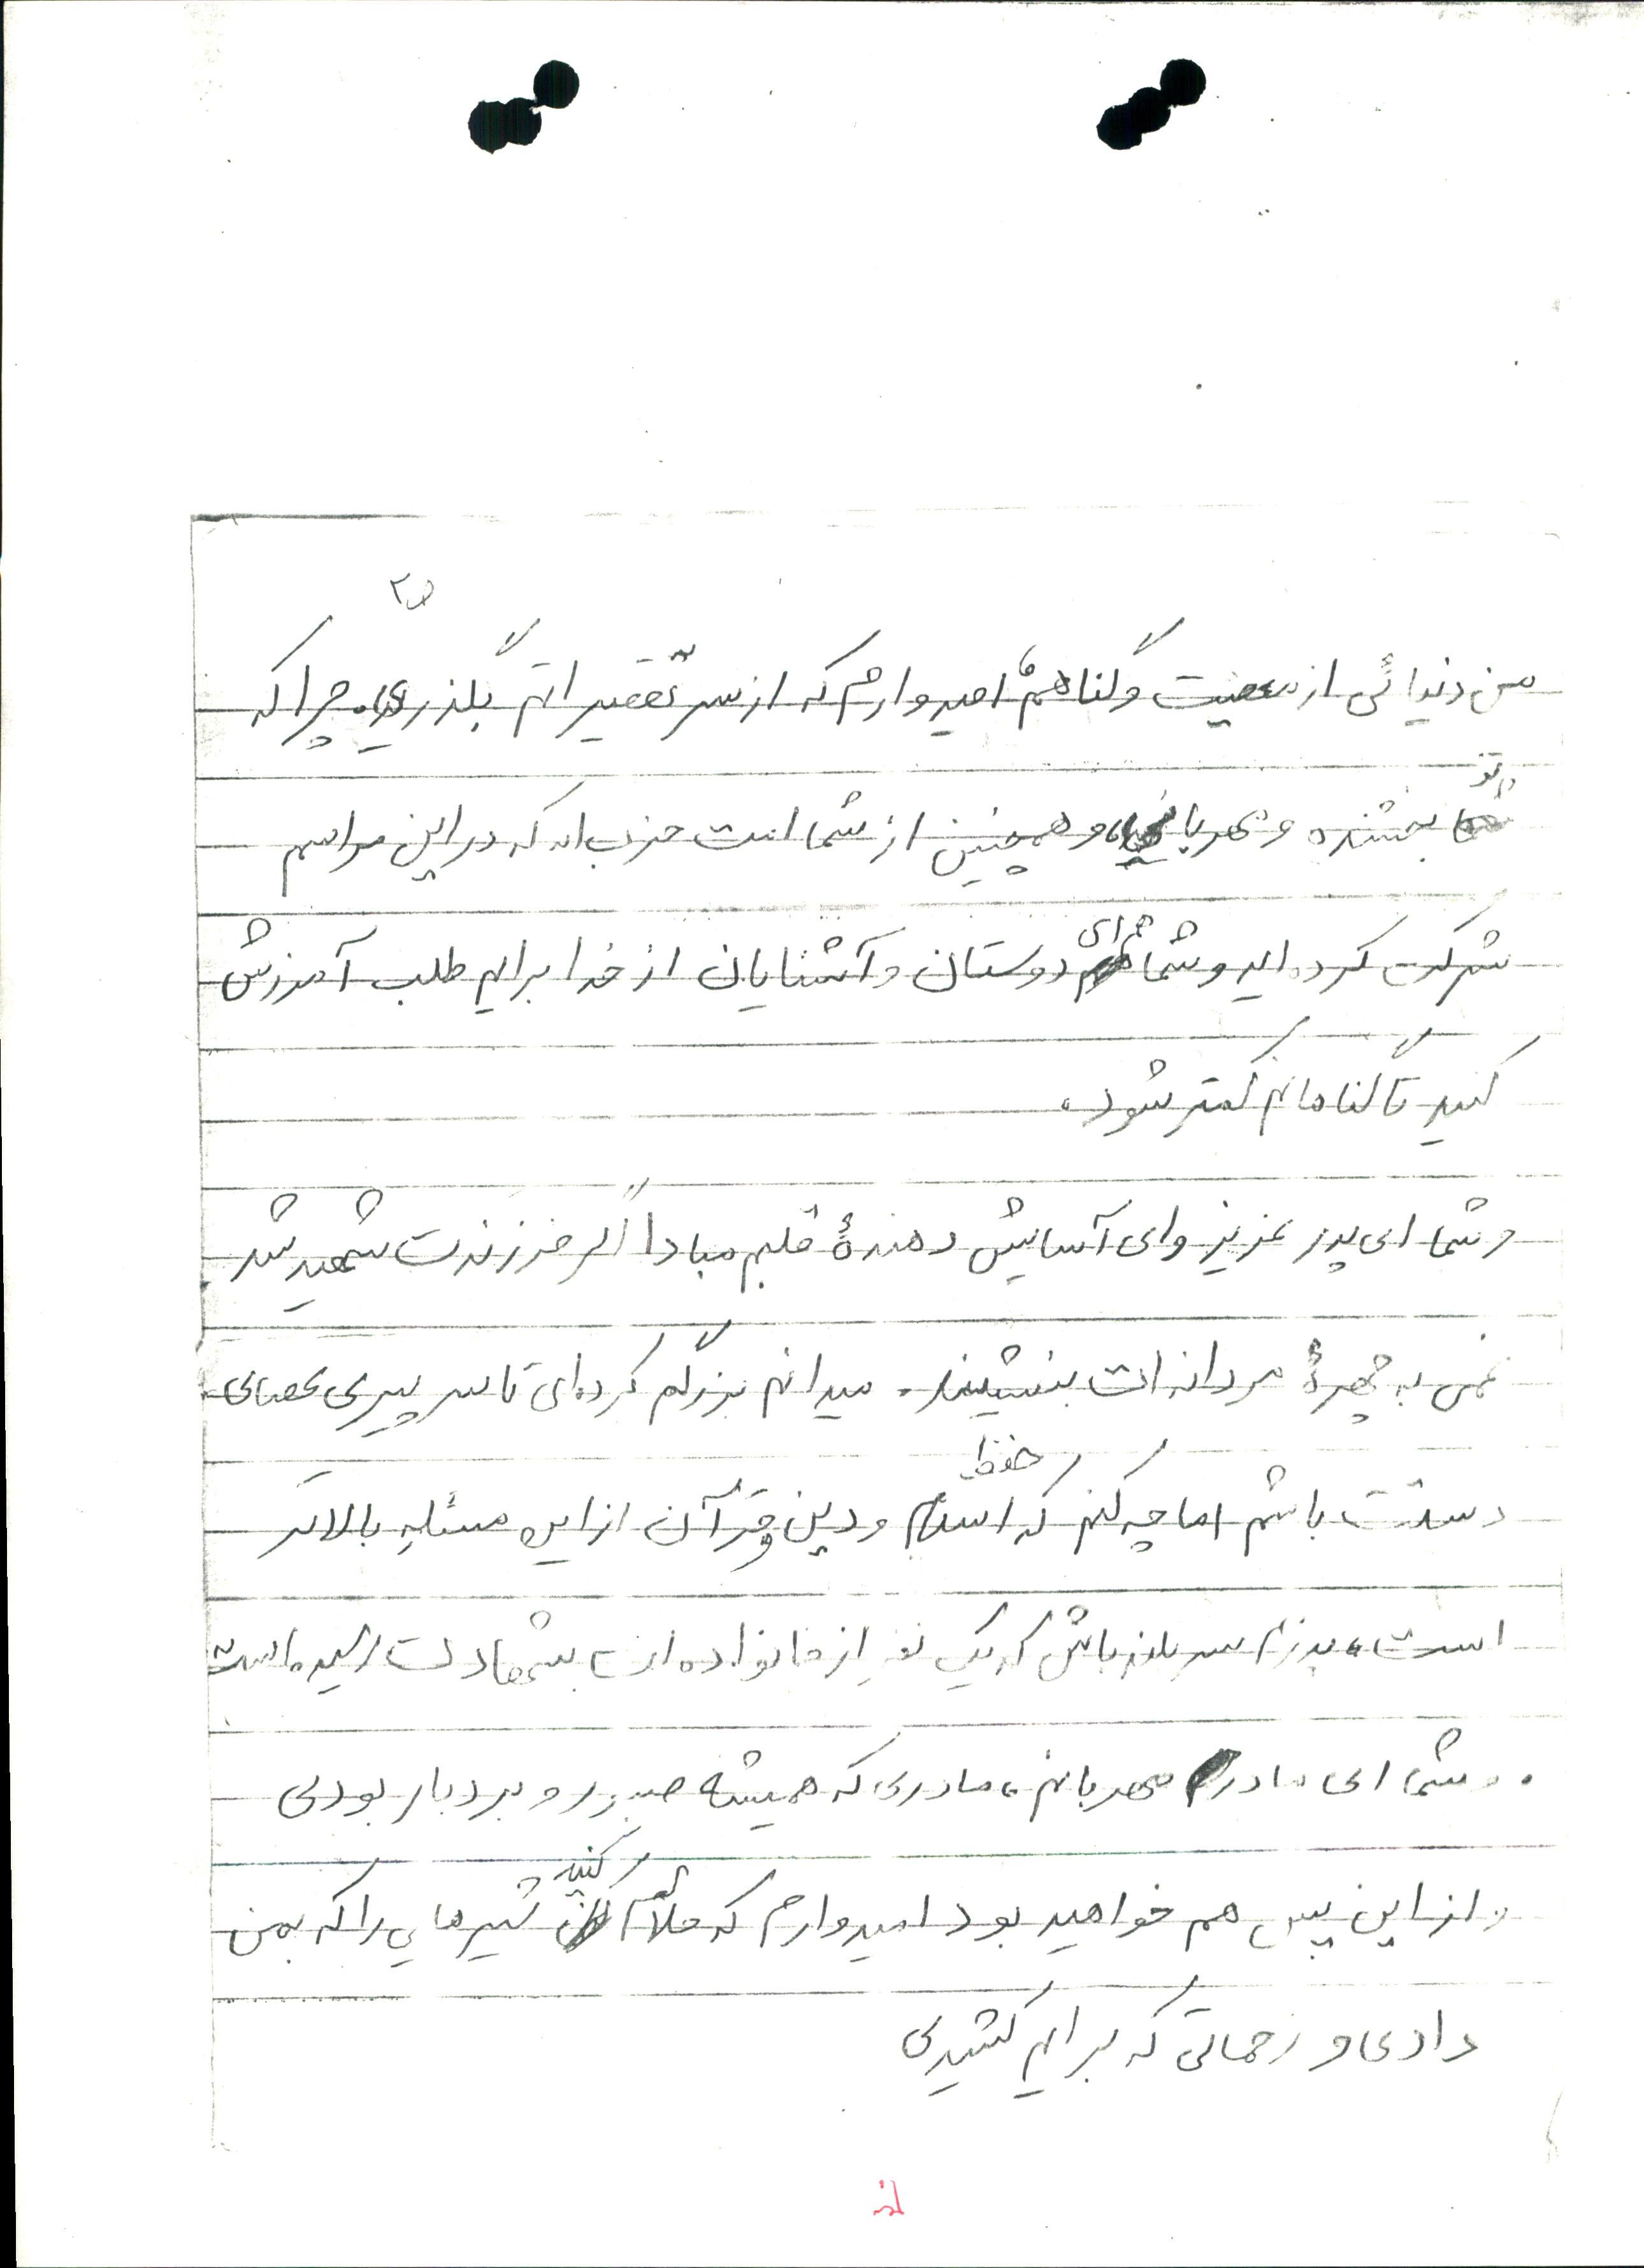 من دنیائی از معصیت و گناهم امیدوارم که از سر تقصیراتم بگذری. چرا که
تو
بخشنده و مهربانی و همچنین از شما امت حزب اله که در این مراسم
شرکت کرده اید و شما ای دوستان و آشنایان از خدا برایم طلب آمرزش
کنید تا گناهانم کمتر شود.
و شما ای پدر عزیز و ای آسایش دهندهٔ قلبم مبادا اگر فرزندت شهید شد
غمی به چهرهٔ مردانه ات بنشیند. میدانم بزرگم کرده ای تا سر پیری عصای
حفظ
دستت باشم اما چه کنم که اسلام و دین و قرآن از این مسئله بالاتر
است، پدرم سربلند باش که یک نفر از خانواده ات بشهادت رسیده است
. و شما ای مادر مهربانم، مادری که همیشه صبور و بردبار بودی
کنید
و از این پس هم خواهید بود امیدوارم که حلالم شیرهایی را که بمن
دادی و زحماتی که برایم کشیدی